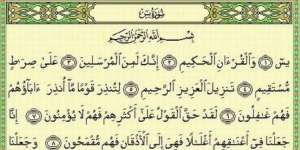 سُورَةُ يسٓ
بِسْمِ اللَّهِ الرَّحْمَٰنِ الرَّحِيمِ
يسٓ ١ وَالْقُرْءَانِ الْحَكِيمِ ٢ إِنَّكَ لَمِنَ الْمُرْسَلِينَ ٣ عَلَىٰ صِرَٰطٍ
مُّسْتَقِيمٍ ٤ تَنزِيلَ الْعَزِيزِ الرَّحِيمِ ٥ لِتُنذِرَ قَوْمًا مَّآ أُنذِرَ ءَابَآؤُهُمْ
فَهُمْ غَٰفِلُونَ ٦ لَقَدْ حَقَّ الْقَوْلُ عَلَىٰٓ أَكْثَرِهِمْ فَهُمْ لَا يُؤْمِنُونَ ٧ إِنَّا
جَعَلْنَا فِىٓ أَعْنَٰقِهِمْ أَغْلَٰلًا فَهِىَ إِلَى الْأَذْقَانِ فَهُم مُّقْمَحُونَ ٨ وَجَعَلْنَا